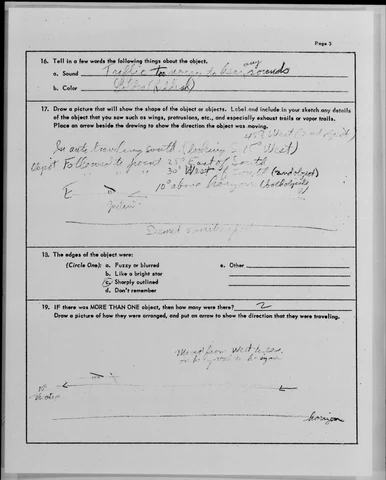 Page 3
16. Tell in a few words the following things about the object.
a. Sound Traffic too noisy to hear any sounds
b. Color
17. Draw a picture that will show the shape of the object or objects. Label and include in your sketch any details
of the object that you saw such as wings, protrusions, etc., and especially exhaust trails or vapor trails.
Place an arrow beside the drawing to show the direction the object was moving.
45° West (2nd object)
In auto traveling south (looking West)
object Followed to point 25° East of South
" " " 30° West of South (2nd object)
E 10° above horizon (both objects)
18. The edges of the object were:
(Circle One): a. Fuzzy or blurred
b. Like a bright star
c. Sharply outlined
d. Don't remember
e. Other
19. IF there was MORE THAN ONE object, then how many were there? 2
Draw a picture of how they were arranged, and put an arrow to show the direction that they were traveling.
Moved from West to
horizon